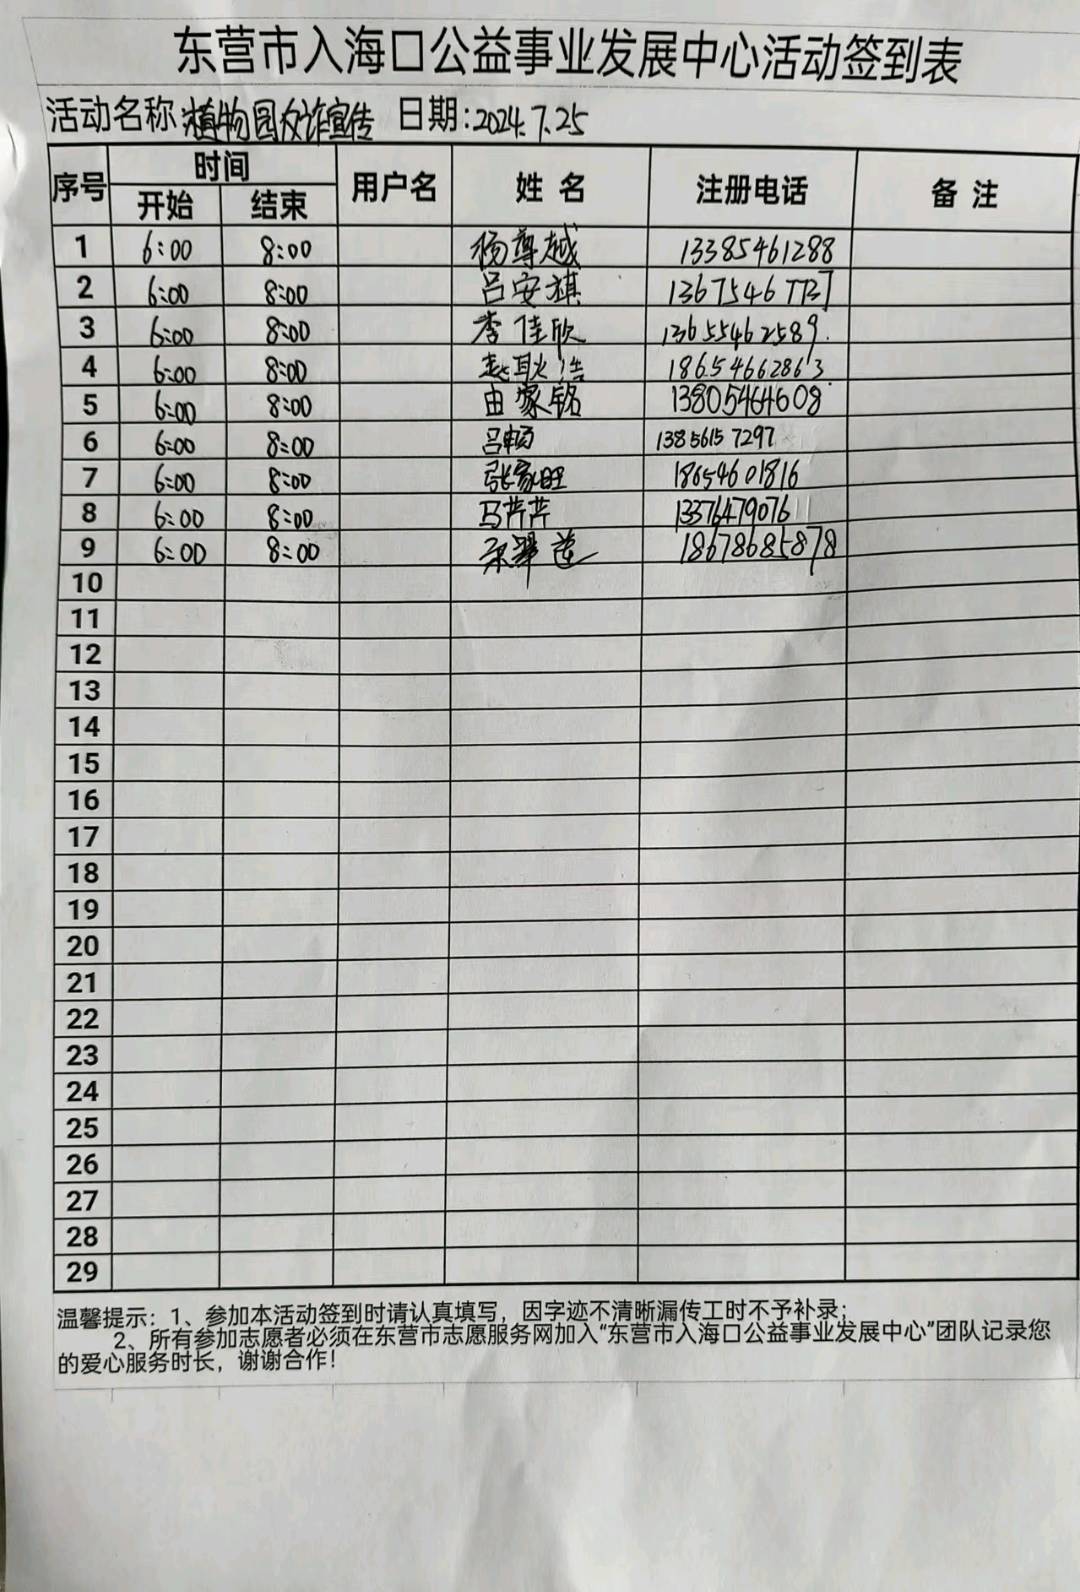 东营市入海口公益事业发展中心活动签到表
活动名称:植物园反诈宣传 日期:2024.7.25
序号 时间 用户名 姓名 注册电话 备注
开始 结束
1 6:00 8:00 杨尊越 13385461288
2 6:00 8:00 吕安祺 13675467737
3 6:00 8:00 李佳欣 13655462589
4 6:00 8:00 赵耿浩 18654662863
5 6:00 8:00 由家铭 13805464608
6 6:00 8:00 吕畅 13856157297
7 6:00 8:00 张家旺 18654601816
8 6:00 8:00 马芹芹 13376479076
9 6:00 8:00 18678685878
10
11
12
13
14
15
16
17
18
19
20
21
22
23
24
25
26
27
28
29
温馨提示：1、参加本活动签到时请认真填写，因字迹不清晰漏传工时不予补录；
2、所有参加志愿者必须在东营市志愿服务网加入“东营市入海口公益事业发展中心”团队记录您
的爱心服务时长，谢谢合作！